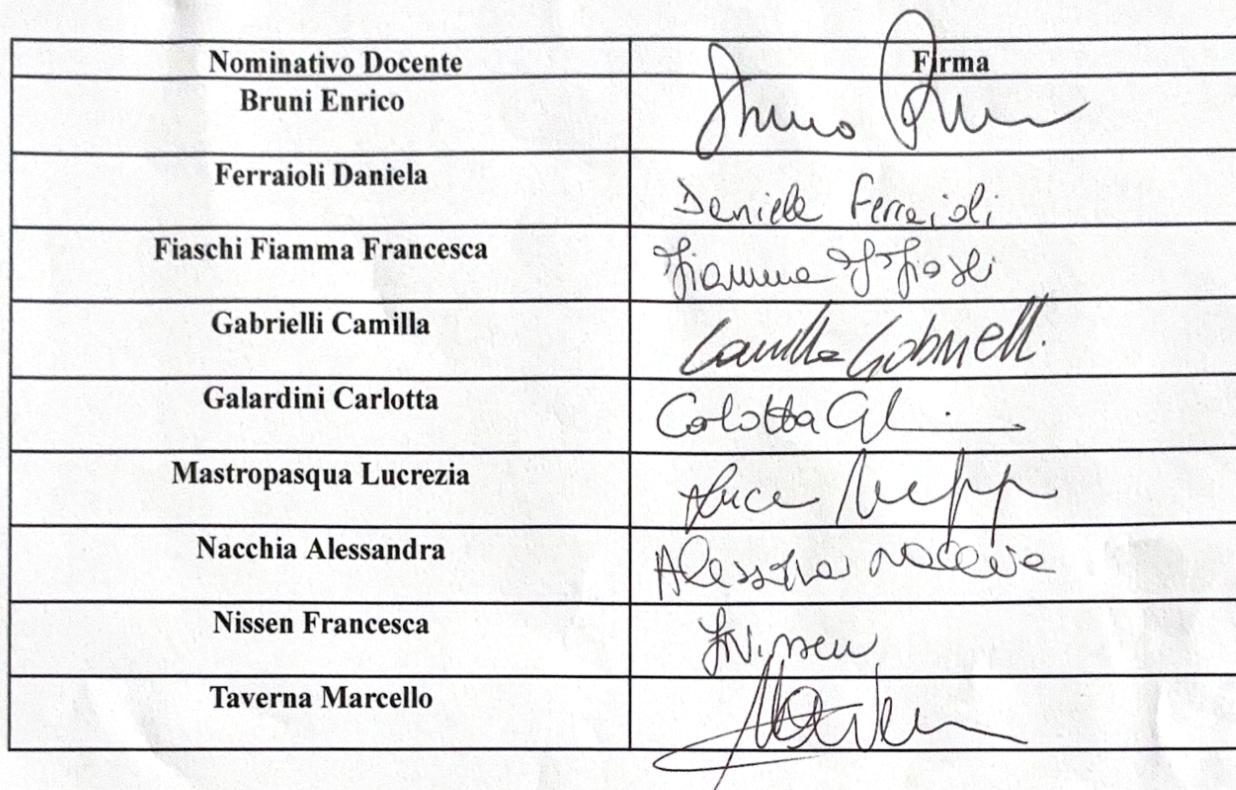 Nominativo Docente Firma
Bruni Enrico
Ferraioli Daniela Daniela Ferraioli
Fiaschi Fiamma Francesca Fiamma
Gabrielli Camilla Camilla Gabrielli
Galardini Carlotta Carlotta
Mastropasqua Lucrezia
Nacchia Alessandra Alessandra Nacchia
Nissen Francesca FNissen
Taverna Marcello